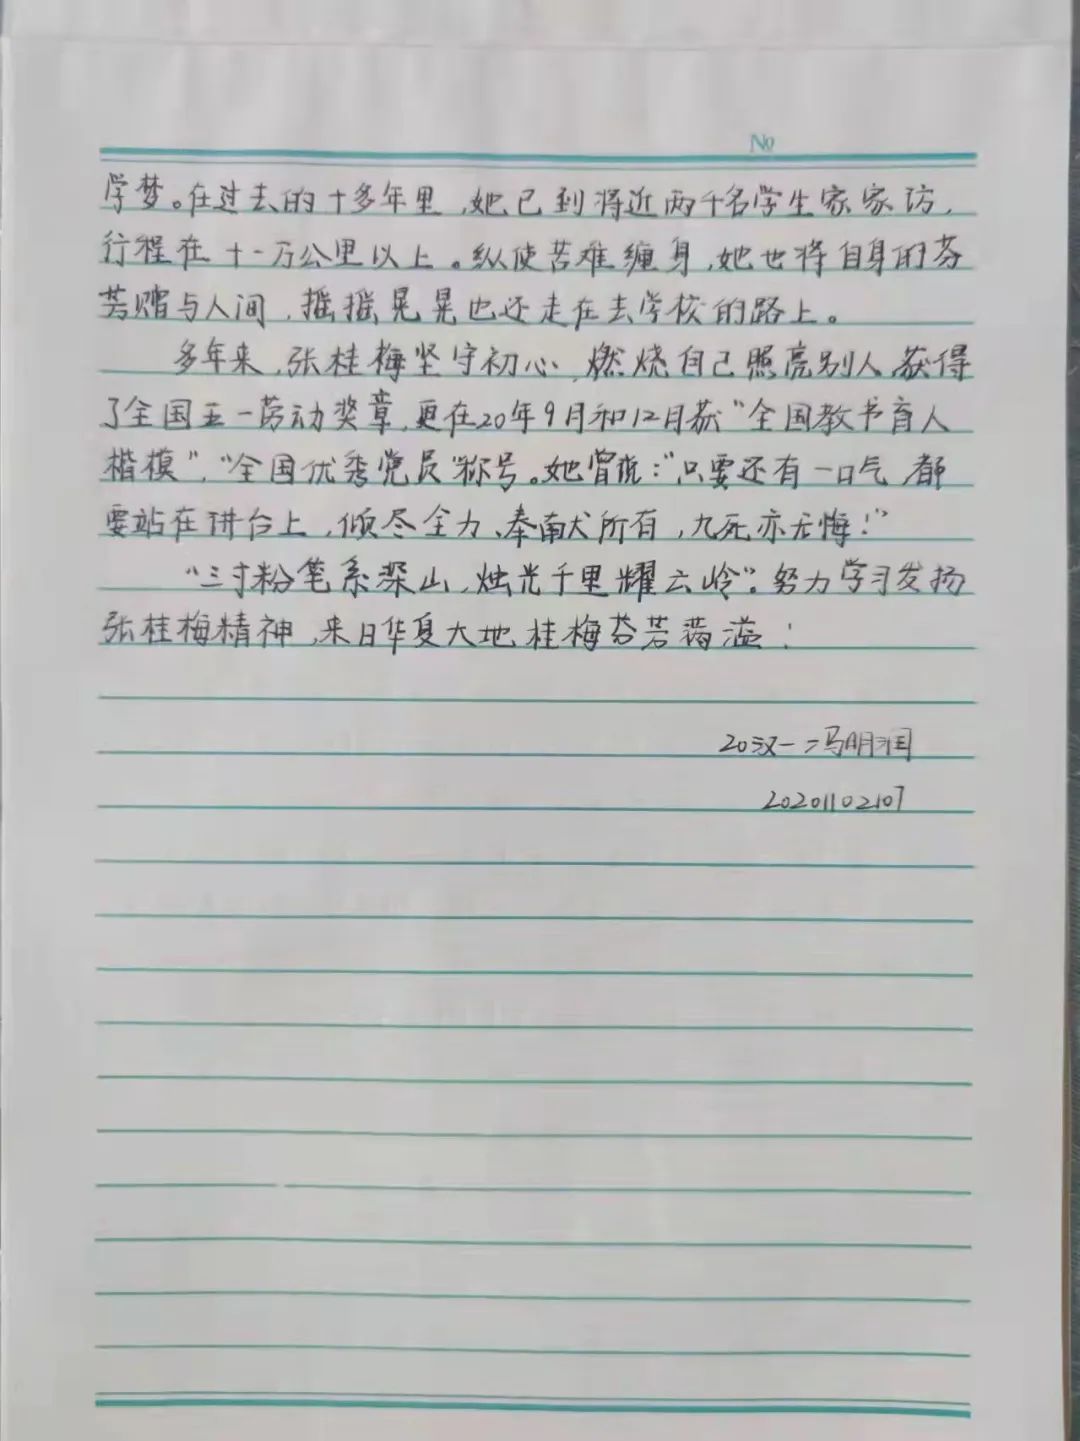 No
学梦。在过去的十多年里,她已到将近两千名学生家家访,
行程在十一万公里以上。纵使苦难缠身,她也将自身的芬
芳赠与人间,摇摇晃晃也还走在去学校的路上。
多年来,张桂梅坚守初心,燃烧自己照亮别人,获得
了全国五一劳动奖章,更在20年9月和12月获“全国教书育人
楷模”,“全国优秀党员”称号。她曾说:“只要还有一口气,都
要站在讲台上,倾尽全力、奉献所有,九死亦无悔!”
“三寸粉笔系深山,烛光千里耀云岭”。努力学习发扬
张桂梅精神,来日华夏大地桂梅芬芳满溢!
20汉一二冯明润
20201102107